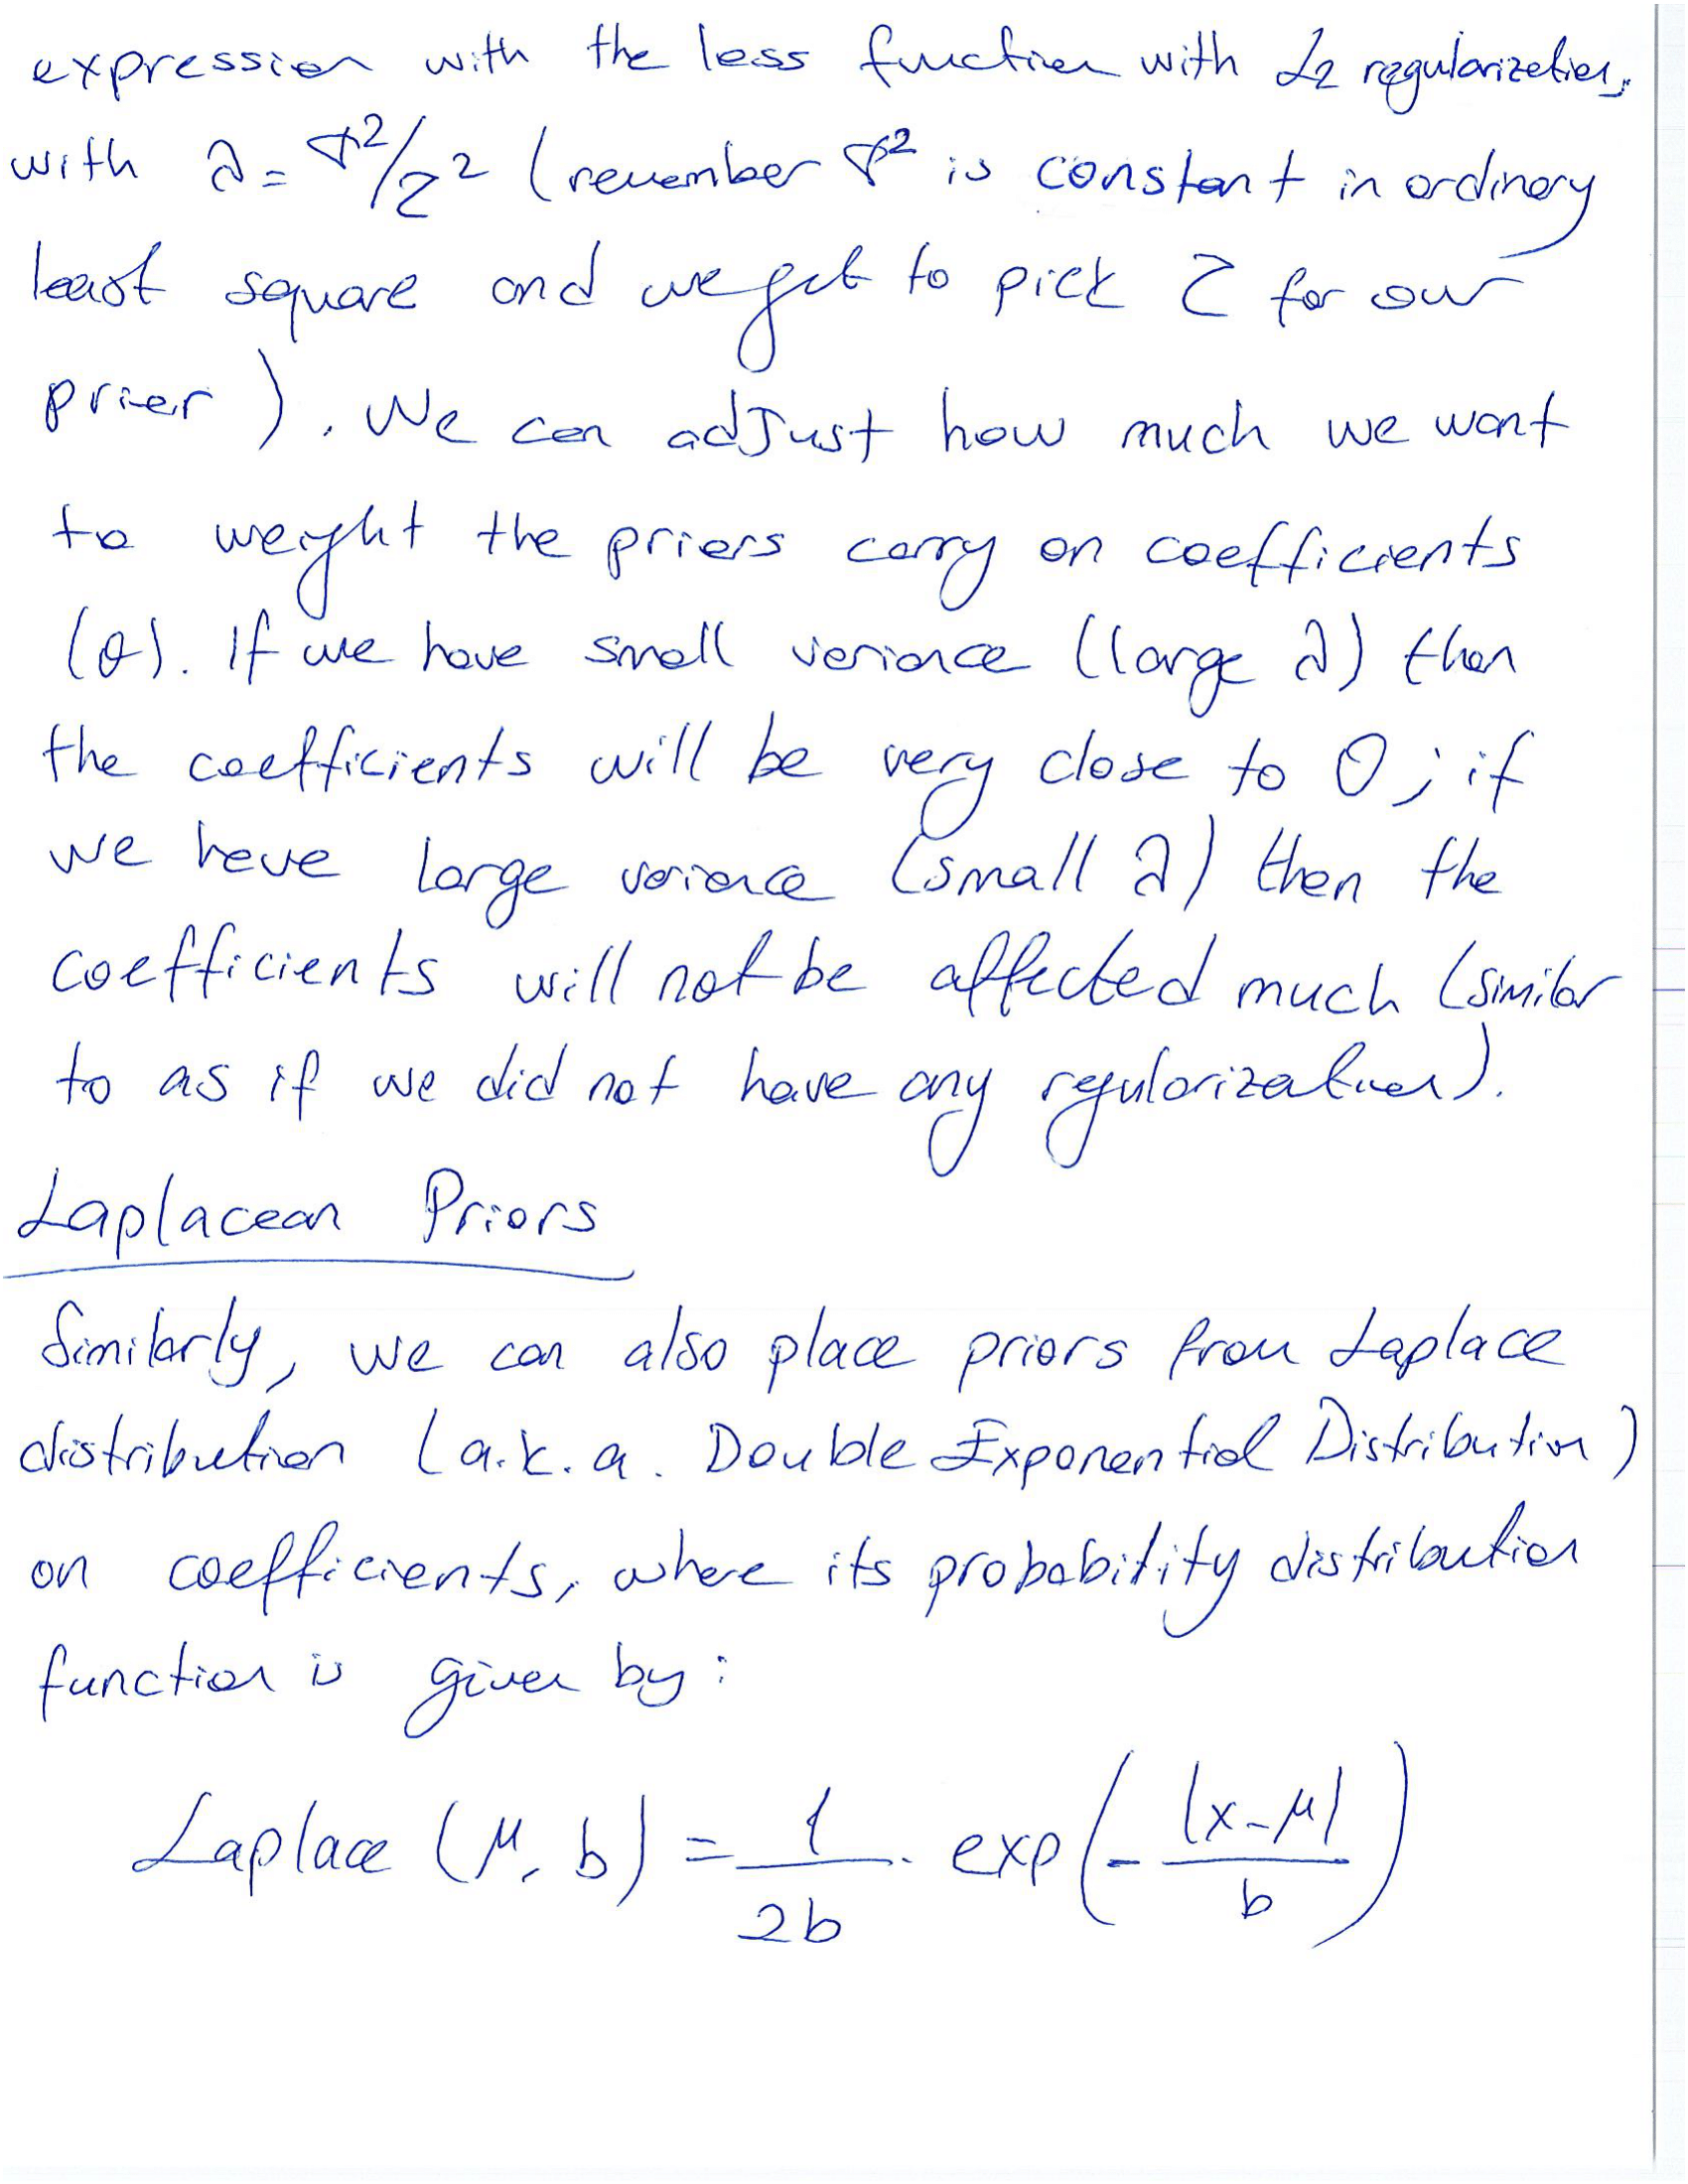 expression with the loss function with L2 regularization,
with λ = σ²/τ² (remember σ² is constant in ordinary
least square and we get to pick τ for our
prior). We can adjust how much we want
to weight the priors carry on coefficients
(θ). If we have small variance (large λ) then
the coefficients will be very close to 0; if
we have large variance (small λ) then the
coefficients will not be affected much (similar
to as if we did not have any regularization).
Laplacean Priors
Similarly, we can also place priors from Laplace
distribution (a.k.a. Double Exponential Distribution)
on coefficients, where its probability distribution
function is given by:
Laplace (μ, b) = 1/2b · exp(- |x-μ|/b)